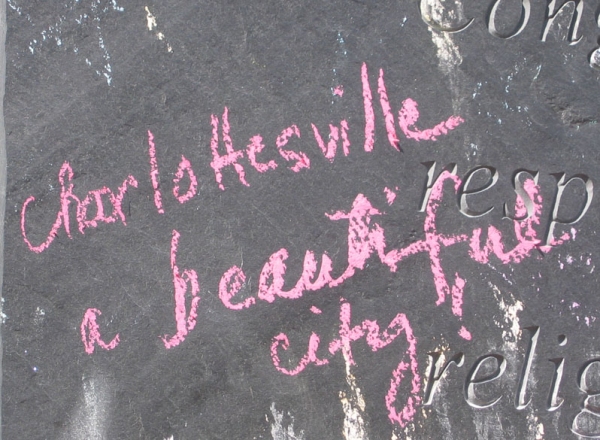 Cong
Charlottesville
resp
a beautiful
city!
relig